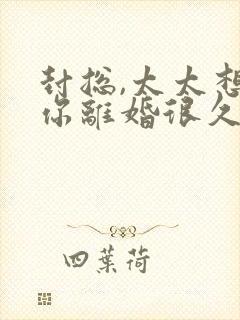 封总,太太想
你離婚很久
四葉荷